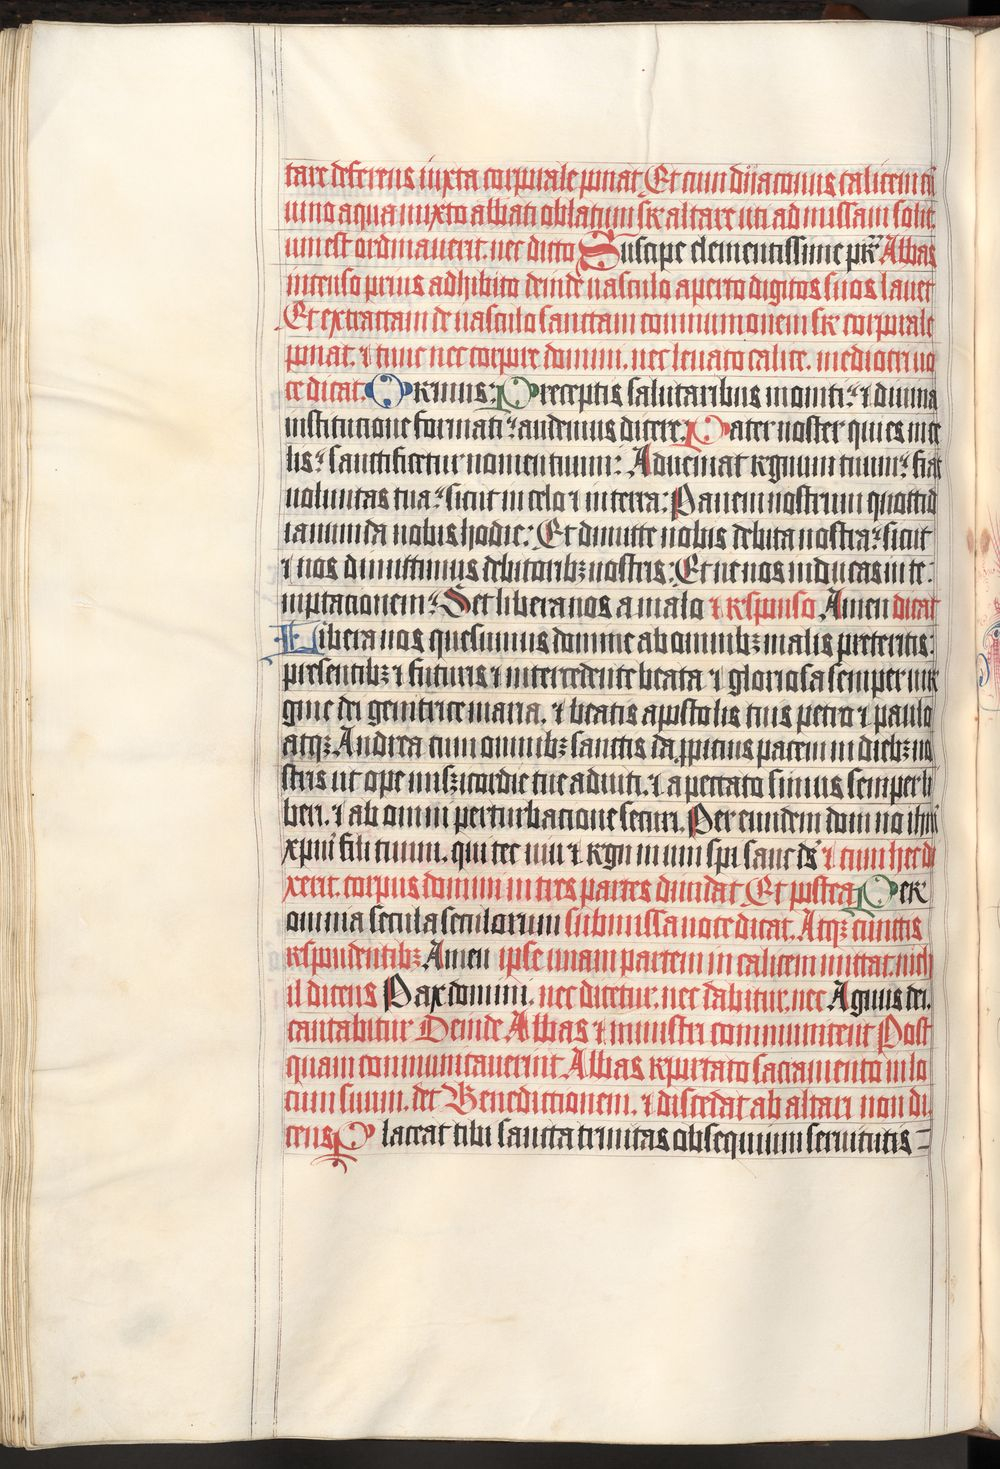 tare deferens iuxta corporale ponat Et cum dyaconus calicem cū
uino aqua mixto abbati oblatum sr̄ altare uti ad missam solit
um est ordinauerit. nec dicto Suscipe clementissime pr̄ Abbas
incenso prius adhibito deinde uasculo aperto digitos suos lauet
Et extractam de uasculo sanctam communionem sr̄ corporale
ponat. ⁊ tunc nec corpore domini. nec leuato calice. mediocri uo
ce dicat. Oremus: Preceptis salutaribus moniti: ⁊ diuina
institutione formati: audemus dicere: Pater noster qui es in ce
lis: sanctificetur nomen tuum: Adueniat regnum tuum: fiat
uoluntas tua: sicut in celo ⁊ in terra: Panem nostrum quottid
ianum da nobis hodie: Et dimitte nobis debita nostra: sicut
⁊ nos dimittimus debitoribꝫ nostris: Et ne nos inducas in te:
mptacionem: Set libera nos a malo ⁊ responso Amen dicat
Libera nos quesumus domine ab omnibꝫ malis preteritis:
presentibꝫ ⁊ futuris ⁊ intercedente beata ⁊ gloriosa semper uir
gine dei genitrice maria. ⁊ beatis apostolis tuis petro ⁊ paulo
atqꝫ Andrea cum omnibꝫ sanctis da ꝓpicius pacem in diebꝫ no
stris ut ope misꝫicordie tue adiuti. ⁊ a peccato simus semper li
beri. ⁊ ab omni perturbacione securi. Per eundem dominō ihm̄
xpm̄ fili tuum. qui tec uiui ⁊ regn in uni spi sanc ds̄ ⁊ cum hec di
xerit. corpus domini in tres partes diuidat Et postea Per
omnia secula seculorum submissa uoce dicat. Atqꝫ cunctis
respondentibꝫ Amen ipse unam partem in calicem mittat. nich
il dicens Pax domini. nec dicetur. nec dabitur. nec Agnus dei.
cantabitur Deinde Abbas ⁊ ministri communicent Post
quam communicauerint Abbas reportato sacramento in lo
cum suum. det Benedictionem. ⁊ discedat ab altari non di
cens Placeat tibi sancta trinitas obsequium seruitutis